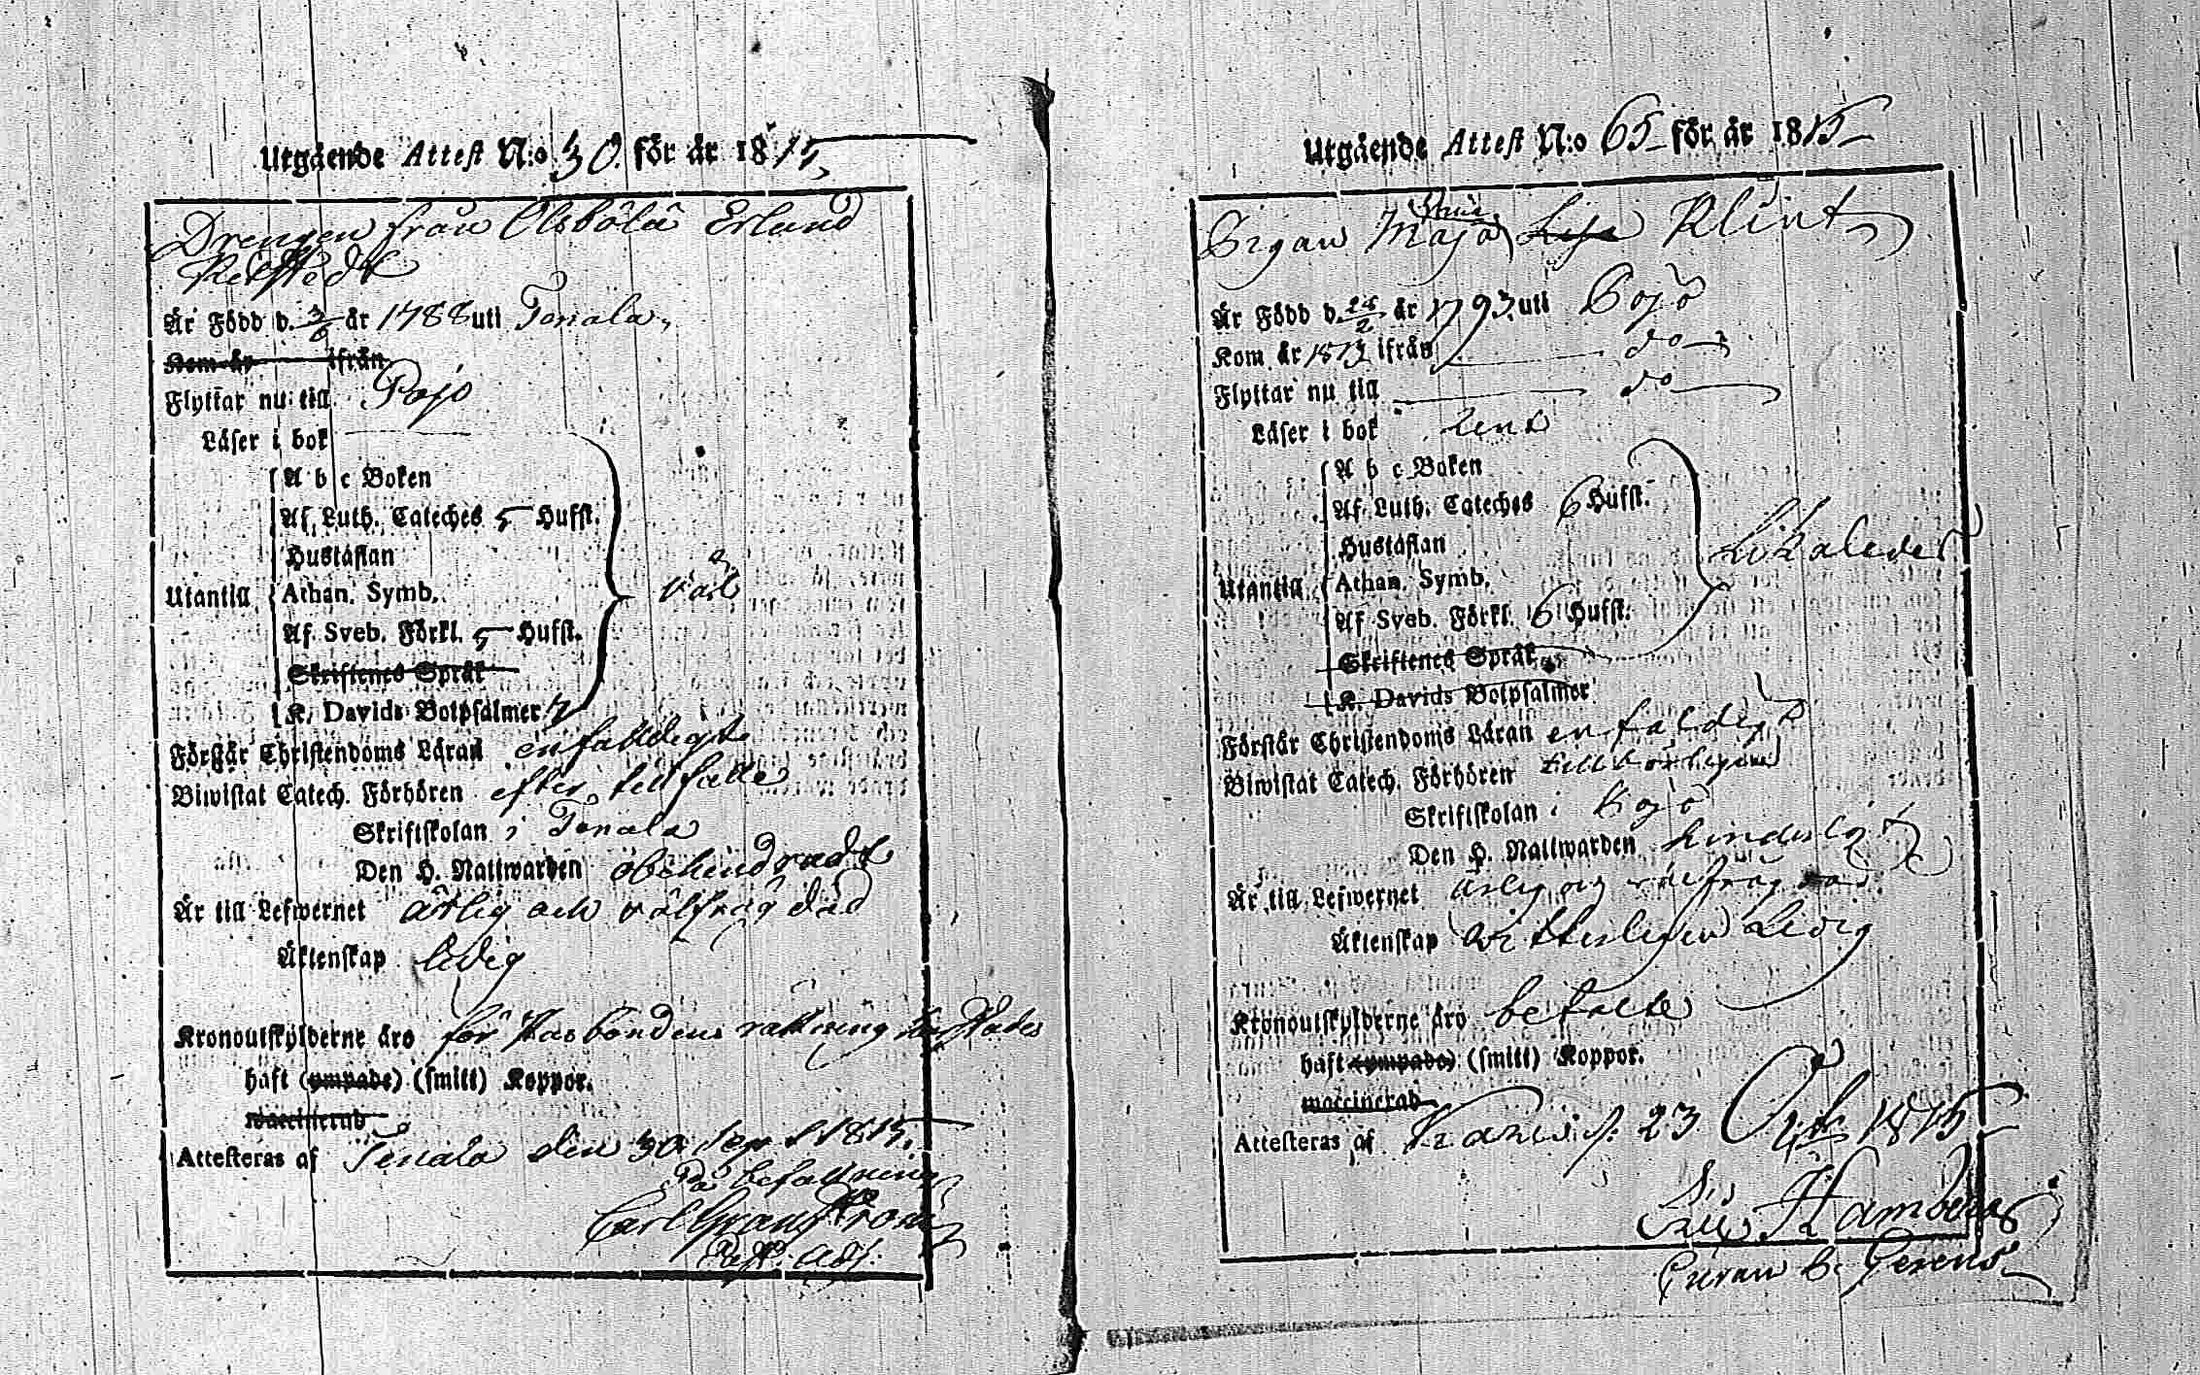 Utgående Attest N:o 30 för år 1815
Drengen från Olsböla Erland
Är Född d. 3/6 år 1788 uti Tenala
Kom år ifrån
Flyttar nu till Pojo
Läser i bok
A b c Boken
Af Luth. Cateches 5 Hufst.
Hustaflan
Utantill Athan. Symb. väl
Af Sveb. Förkl. 5 Hufst.
Skriftenes Språk
K. Davids Botpsalmer 7
Förstår Christendoms Läran enfalldigt
Biwistat Catech. Förhören efter tillfälle
Skriftskolan i Tenala
Den H. Nattwarden obehindradt
Är till Lefwernet ärlig och välfrägdad
Äktenskap ledig
Kronoutskylderne äro för Husbondens räkning
haft (ympade) (smitt) Koppor.
waccinerad
Attesteras af Tenala den 30 Sept 1815.
På befallning
Carl Granström
Past. Adj.
Utgående Attest N:o 65 för år 1815
Pigan Maja Lisa Klint
Är Född d. 24/2 år 1793 uti Pojo
Kom år 1813 ifrån do
Flyttar nu till do
Läser i bok rent
A b c Boken
Af Luth. Cateches 6 Hufst.
Hustaflan Likaledes
Utantill Athan. Symb.
Af Sveb. Förkl. 6 Hufst.
Skriftenes Språk
K. Davids Botpsalmer
Förstår Christendoms Läran enfaldigt
Biwistat Catech. Förhören tillbörligen
Skriftskolan i Pojo
Den H. Nattwarden
Är till Lefwernet ärlig og välfrägdad
Äktenskap witterligen Ledig
Kronoutskylderne äro betalte
haft (ympade) (smitt) Koppor.
waccinerad
Attesteras af Karis d. 23 Octb 1815
Curam G. Gerens